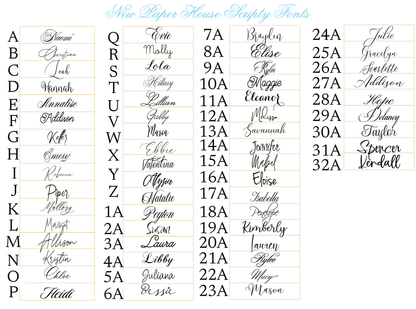 New Paper House Scripty Fonts
A Naomi
B Christina
C Leah
D Hannah
E Annalise
F Addison
G Kelly
H Emery
I Rebecca
J Piper
K Mallory
L Margot
M Allison
N Kristin
O Chloe
P Heidi
Q Evie
R Molly
S Lola
T Hillary
U Lillian
V Gabby
W Mason
X Ebbie
Y Valentina
Z Alyssa
Natalie
1A Peyton
2A Susan
3A Laura
4A Libby
5A Juliana
6A Bessie
7A Brayden
8A Elise
9A Rylie
10A Maggie
11A Eleanor
12A Melissa
13A Savannah
14A Jennifer
15A Mabel
16A Eloise
17A Isabella
18A Penelope
19A Kimberly
20A Lauren
21A Rylee
22A Macy
23A Mason
24A Julie
25A Gracelyn
26A Scarlette
27A Addison
28A Hope
29A Delaney
30A Taylor
31A Spencer
32A Kendall